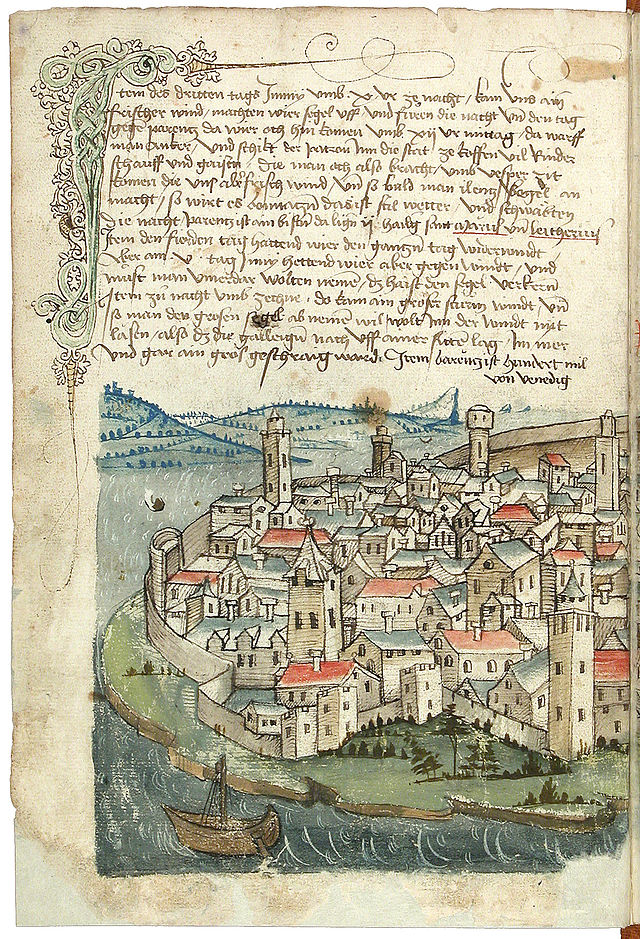 Item des dritten tags Junny vmb x vr ze nacht / kam vns ain
frischer wind / machten wier segel vff / vnd fůren die nacht vnd den tag
gege parentz da wier och hin komen vmb xij vr mittag / da warff
man ancker / vnd schikt der patron Inn die stat / ze koffen vil Rinder
schauff und gaissen / die man och also bracht / vmb vesper zit
komen die vns als frisch wind / vn̄ so bald man ilentz segel an
macht / so wirt es bonnatza das ist stil wetter / vnd
die nacht parentz ist ain bistū da lign ij hailg sant vn̄
Item den fierden tag hattend wier den gantzn̄ tag widerwindt
Aber am v tag Junny hettend wier aber gegen windt / vnd
můst man vmerdar wolten neme / dz haist den segel verkern
Item zů nacht vmb zechne / do kam ain groser sturm windt / vn̄
so man den grosen segel ab nemē wil / wolt Inn der windt nit
lasen / also dz die galleign nach vff ainer siten lag / Im mer
vnd gar ain gros geschraig ward. Item barentz ist hundert mil
von venedig